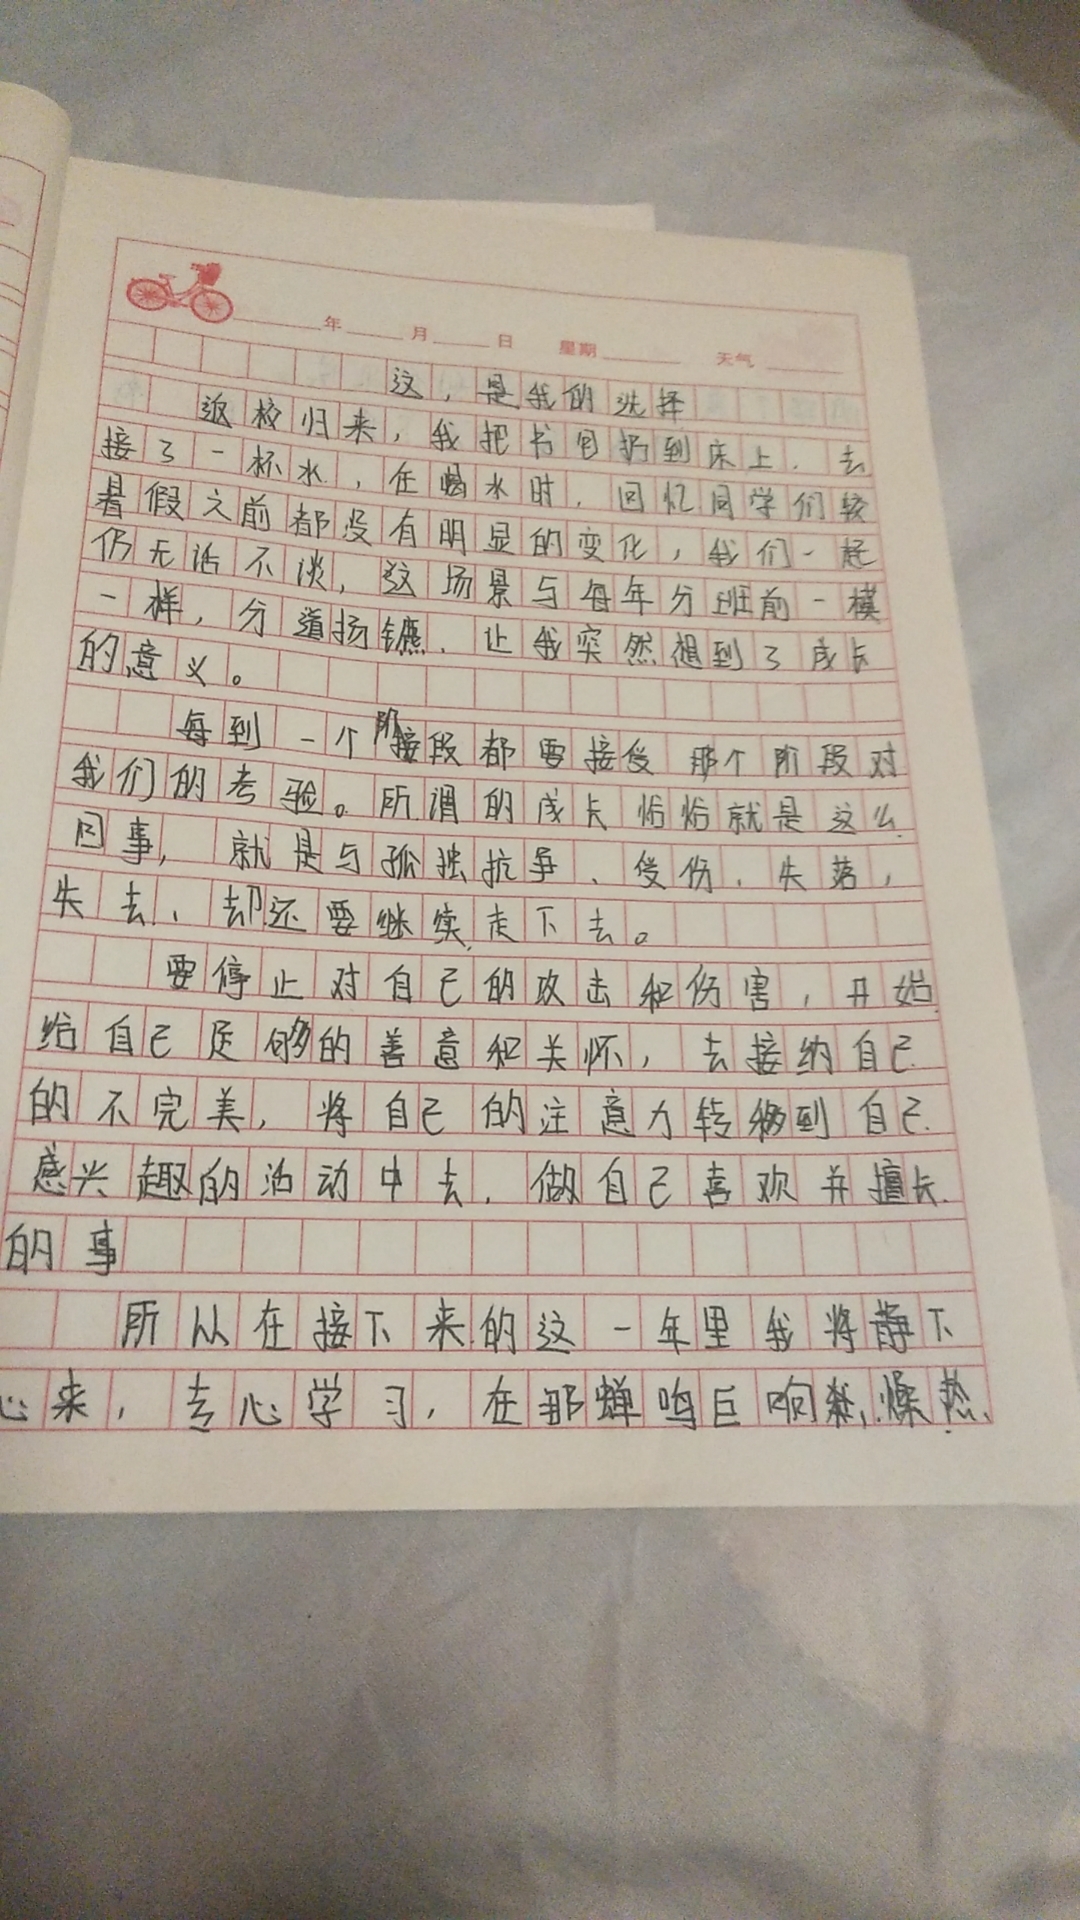 年 月 日 星期 天气
这，是我的选择
返校归来，我把书包扔到床上，去
接了一杯水，在喝水时，回忆同学们较
暑假之前都没有明显的变化，我们一起
仍无话不谈，这场景与每年分班前一模
一样，分道扬镳，让我突然想到了成长
的意义。
每到一个阶段都要接受那个阶段对
我们的考验。所谓的成长恰恰就是这么
回事，就是与孤独抗争、受伤、失落，
失去、却还要继续走下去。
要停止对自己的攻击和伤害，开始
给自己足够的善意和关怀，去接纳自己
的不完美，将自己的注意力转移到自己
感兴趣的活动中去，做自己喜欢并擅长
的事
所以在接下来的这一年里我将静下
心来，专心学习，在那蝉鸣巨响 燥热